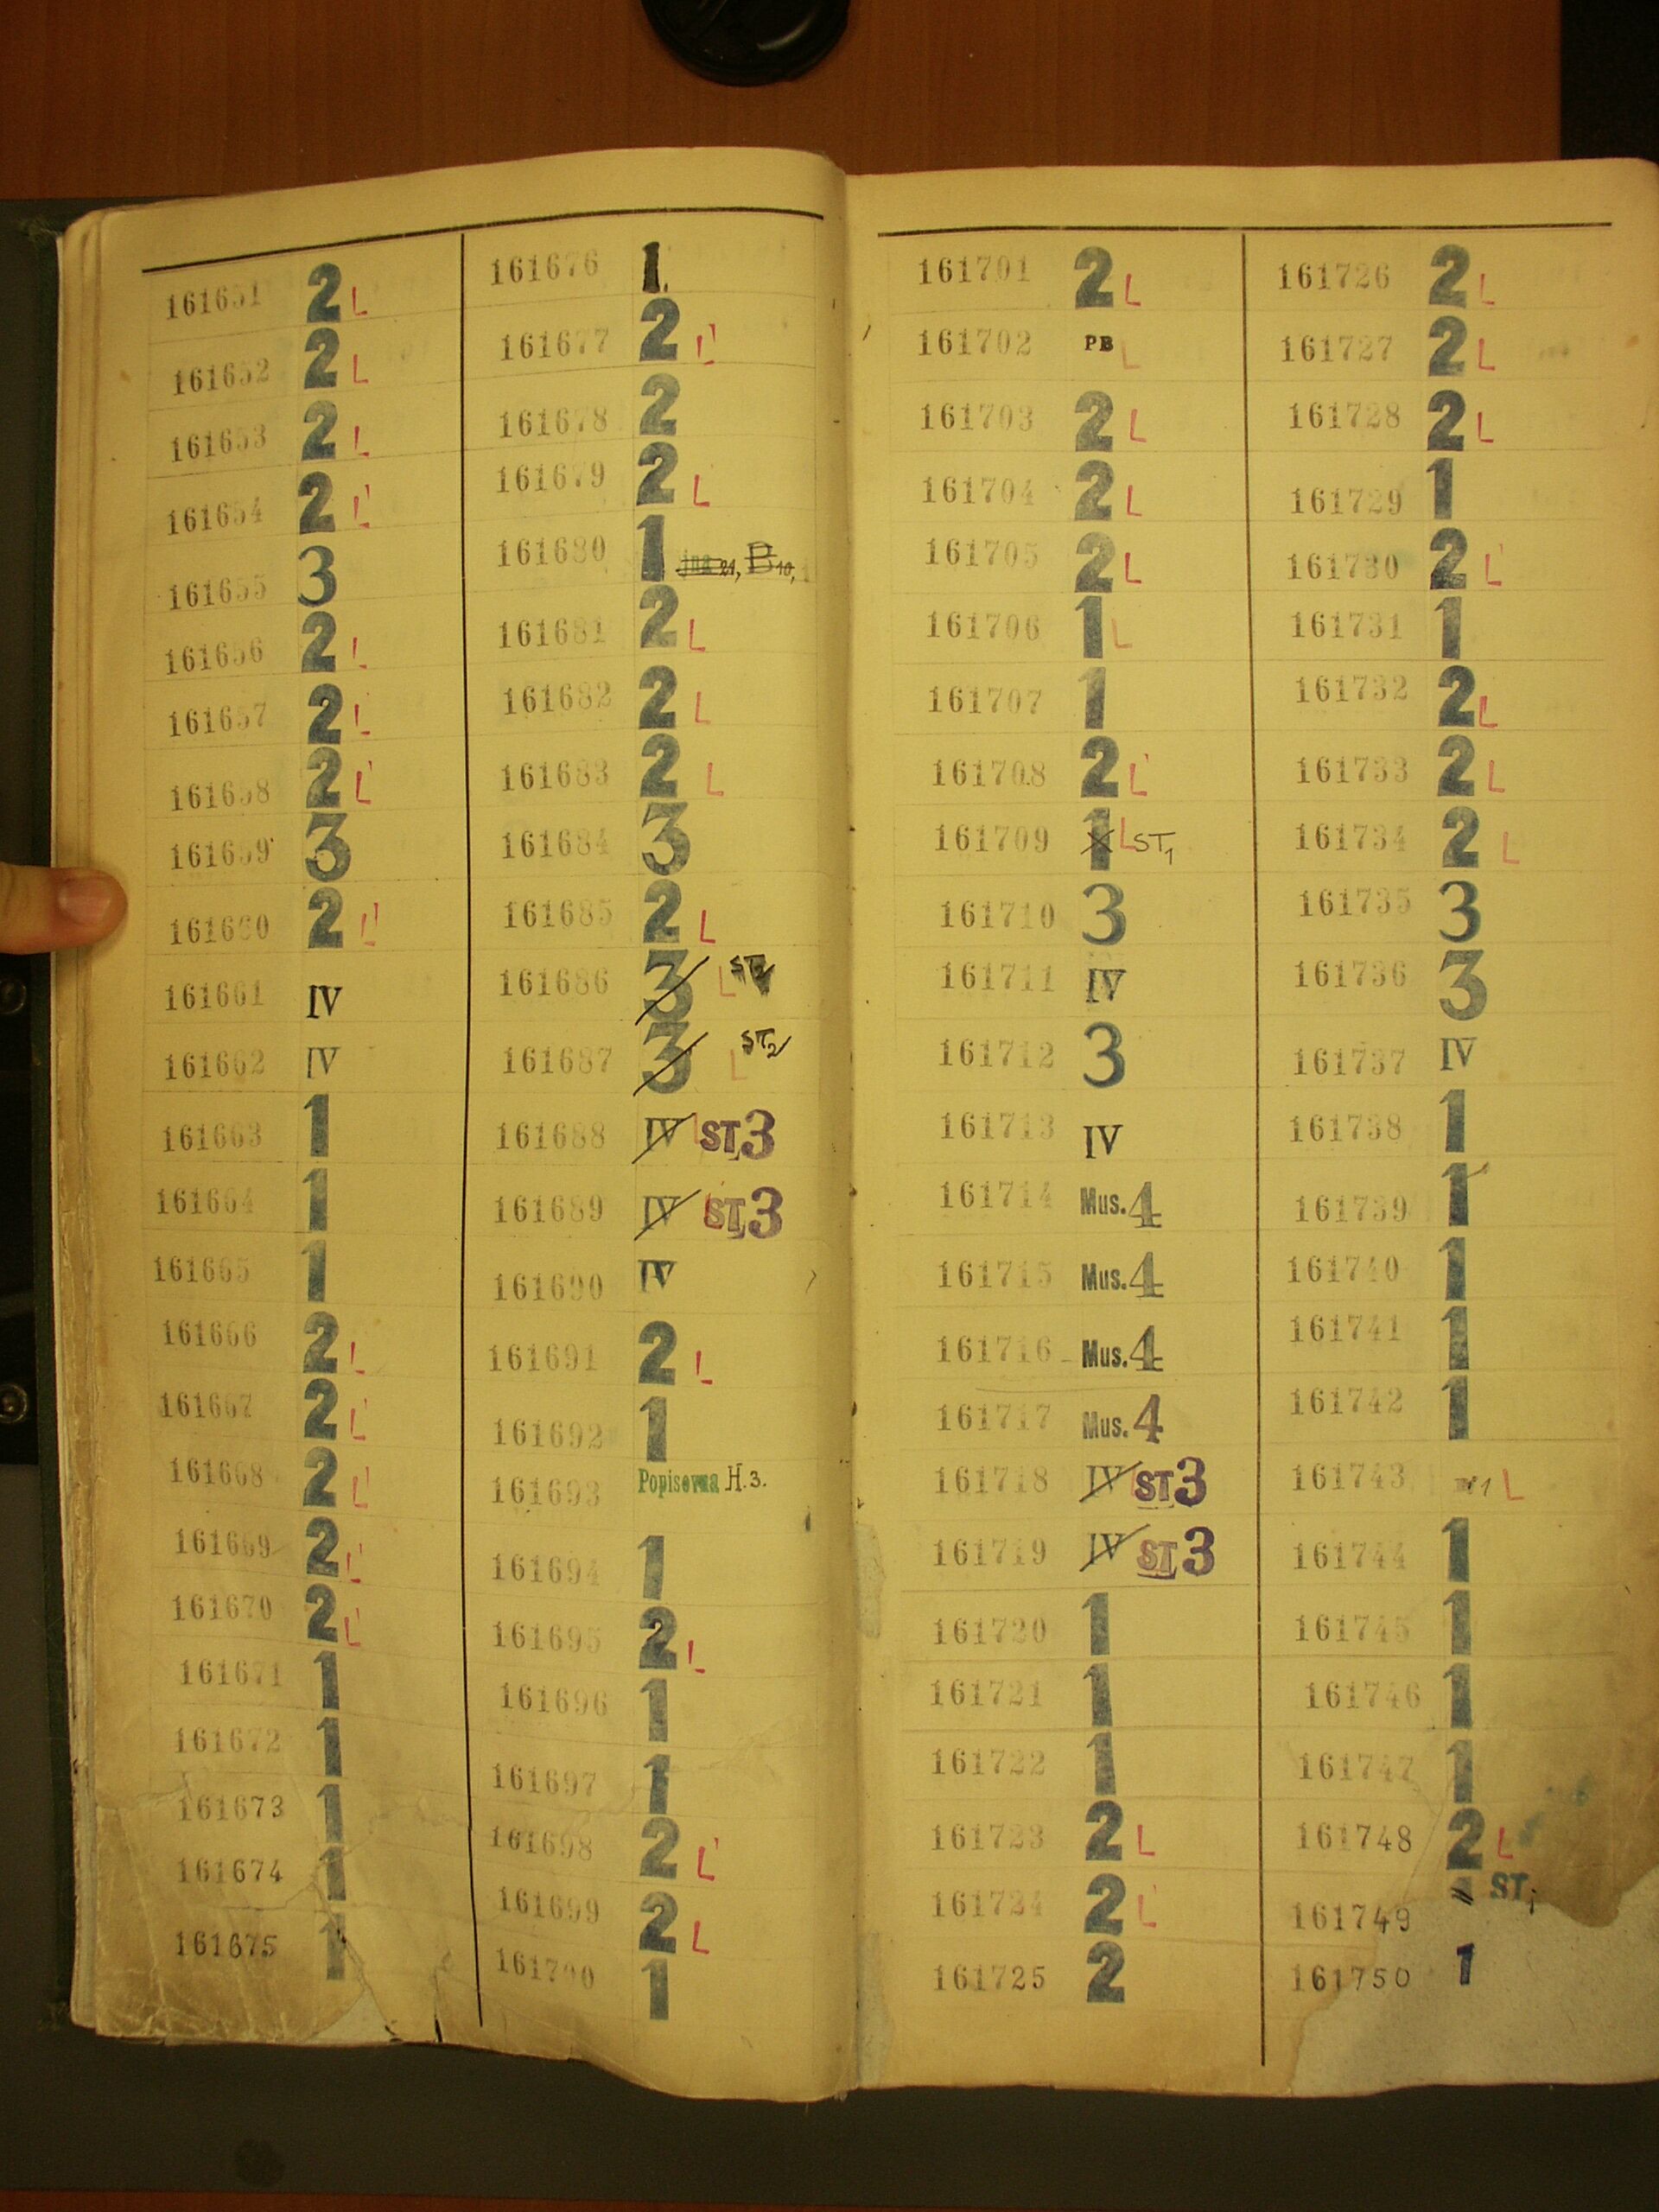 161651 2 L
161652 2 L
161653 2 L
161654 2 L
161655 3
161656 2 L
161657 2 L
161658 2 L
161659 3
161660 2 L
161661 IV
161662 IV
161663 1
161664 1
161665 1
161666 2 L
161667 2 L
161668 2 L
161669 2 L
161670 2 L
161671 1
161672 1
161673 1
161674 1
161675 1
161676 1
161677 2 L
161678 2
161679 2 L
161680 1
161681 2 L
161682 2 L
161683 2 L
161684 3
161685 2 L
161686 3 L
161687 3 L ST2
161688 IV ST3
161689 IV L ST3
161690 IV
161691 2 L
161692 1
161693 Popisovna H.3.
161694 1
161695 2 L
161696 1
161697 1
161698 2 L
161699 2 L
161700 1
161701 2 L
161702 PB L
161703 2 L
161704 2 L
161705 2 L
161706 1 L
161707 1
161708 2 L
161709 1 L ST1
161710 3
161711 IV
161712 3
161713 IV
161714 Mus. 4
161715 Mus. 4
161716 Mus. 4
161717 Mus. 4
161718 IV ST3
161719 IV ST3
161720 1
161721 1
161722 1
161723 2 L
161724 2 L
161725 2
161726 2 L
161727 2 L
161728 2 L
161729 1
161730 2 L
161731 1
161732 2 L
161733 2 L
161734 2 L
161735 3
161736 3
161737 IV
161738 1
161739 1
161740 1
161741 1
161742 1
161743 L
161744 1
161745 1
161746 1
161747 1
161748 2 L
161749 ST1
161750 1